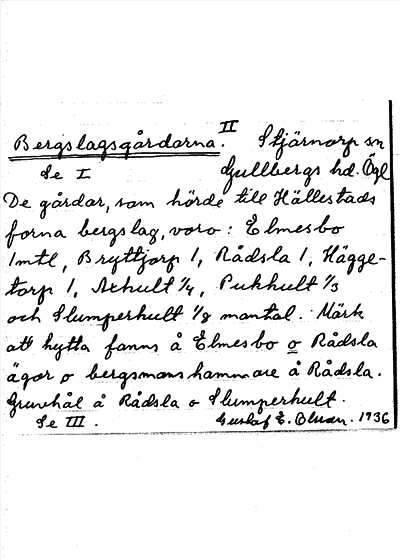 Bergslagsgårdarna. II Stjärnorp sn
Se I Gullbergs hd. Ögl
De gårdar, som hörde till Hällestads
forna bergslag, voro: Elmesbo
1mtl, Bryttjorp 1, Rådsla 1, Hägge-
torp 1, Axhult 1/4, Pukhult 1/3
och Slumperhult 1/8 mantal. Märk
att hytta fanns å Elmesbo o Rådsla
ägor o bergsmanshammare å Rådsla.
Gruvhål å Rådsla o Slumperhult.
Se III. Gustaf E. Olsson. 1936